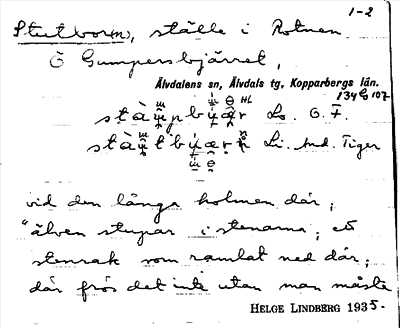 1-2
Stutbor(n), ställe i Rotnen
Ö Gumpersbjärret,
Älvdalens sn, Älvdals tg, Kopparbergs län.
134 G 107
Lo. O. F.
Li. And. Tiger
vid den långa holmen där;
"älven stupar i stenarna; ett
stenrak som ramlat ned där;
där frös det inte utan man måste
HELGE LINDBERG 1935-